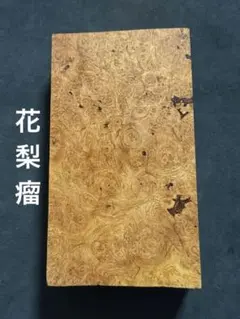 花梨瘤